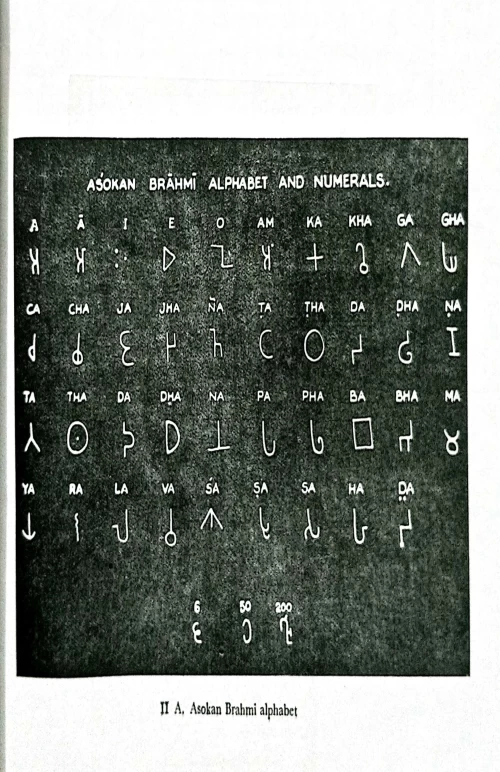 AŚOKAN BRĀHMĪ ALPHABET AND NUMERALS.
A Ā I E O AM KA KHA GA GHA
𑀅 𑀆 𑀇 𑀏 𑀑 𑀅𑀁 𑀓 𑀔 𑀕 𑀖
CA CHA JA JHA ÑA ṬA ṬHA DA ḌHA ṆA
𑀘 𑀙 𑀚 𑀛 𑀜 𑀝 𑀞 𑀟 𑀠 𑀡
TA THA DA DHA NA PA PHA BA BHA MA
𑀢 𑀣 𑀤 𑀥 𑀦 𑀧 𑀨 𑀩 𑀪 𑀫
YA RA LA VA ŚA ṢA SA HA D̤A
𑀬 𑀭 𑀮 𑀯 𑀰 𑀱 𑀲 𑀳
6 50 200
II A. Asokan Brahmi alphabet